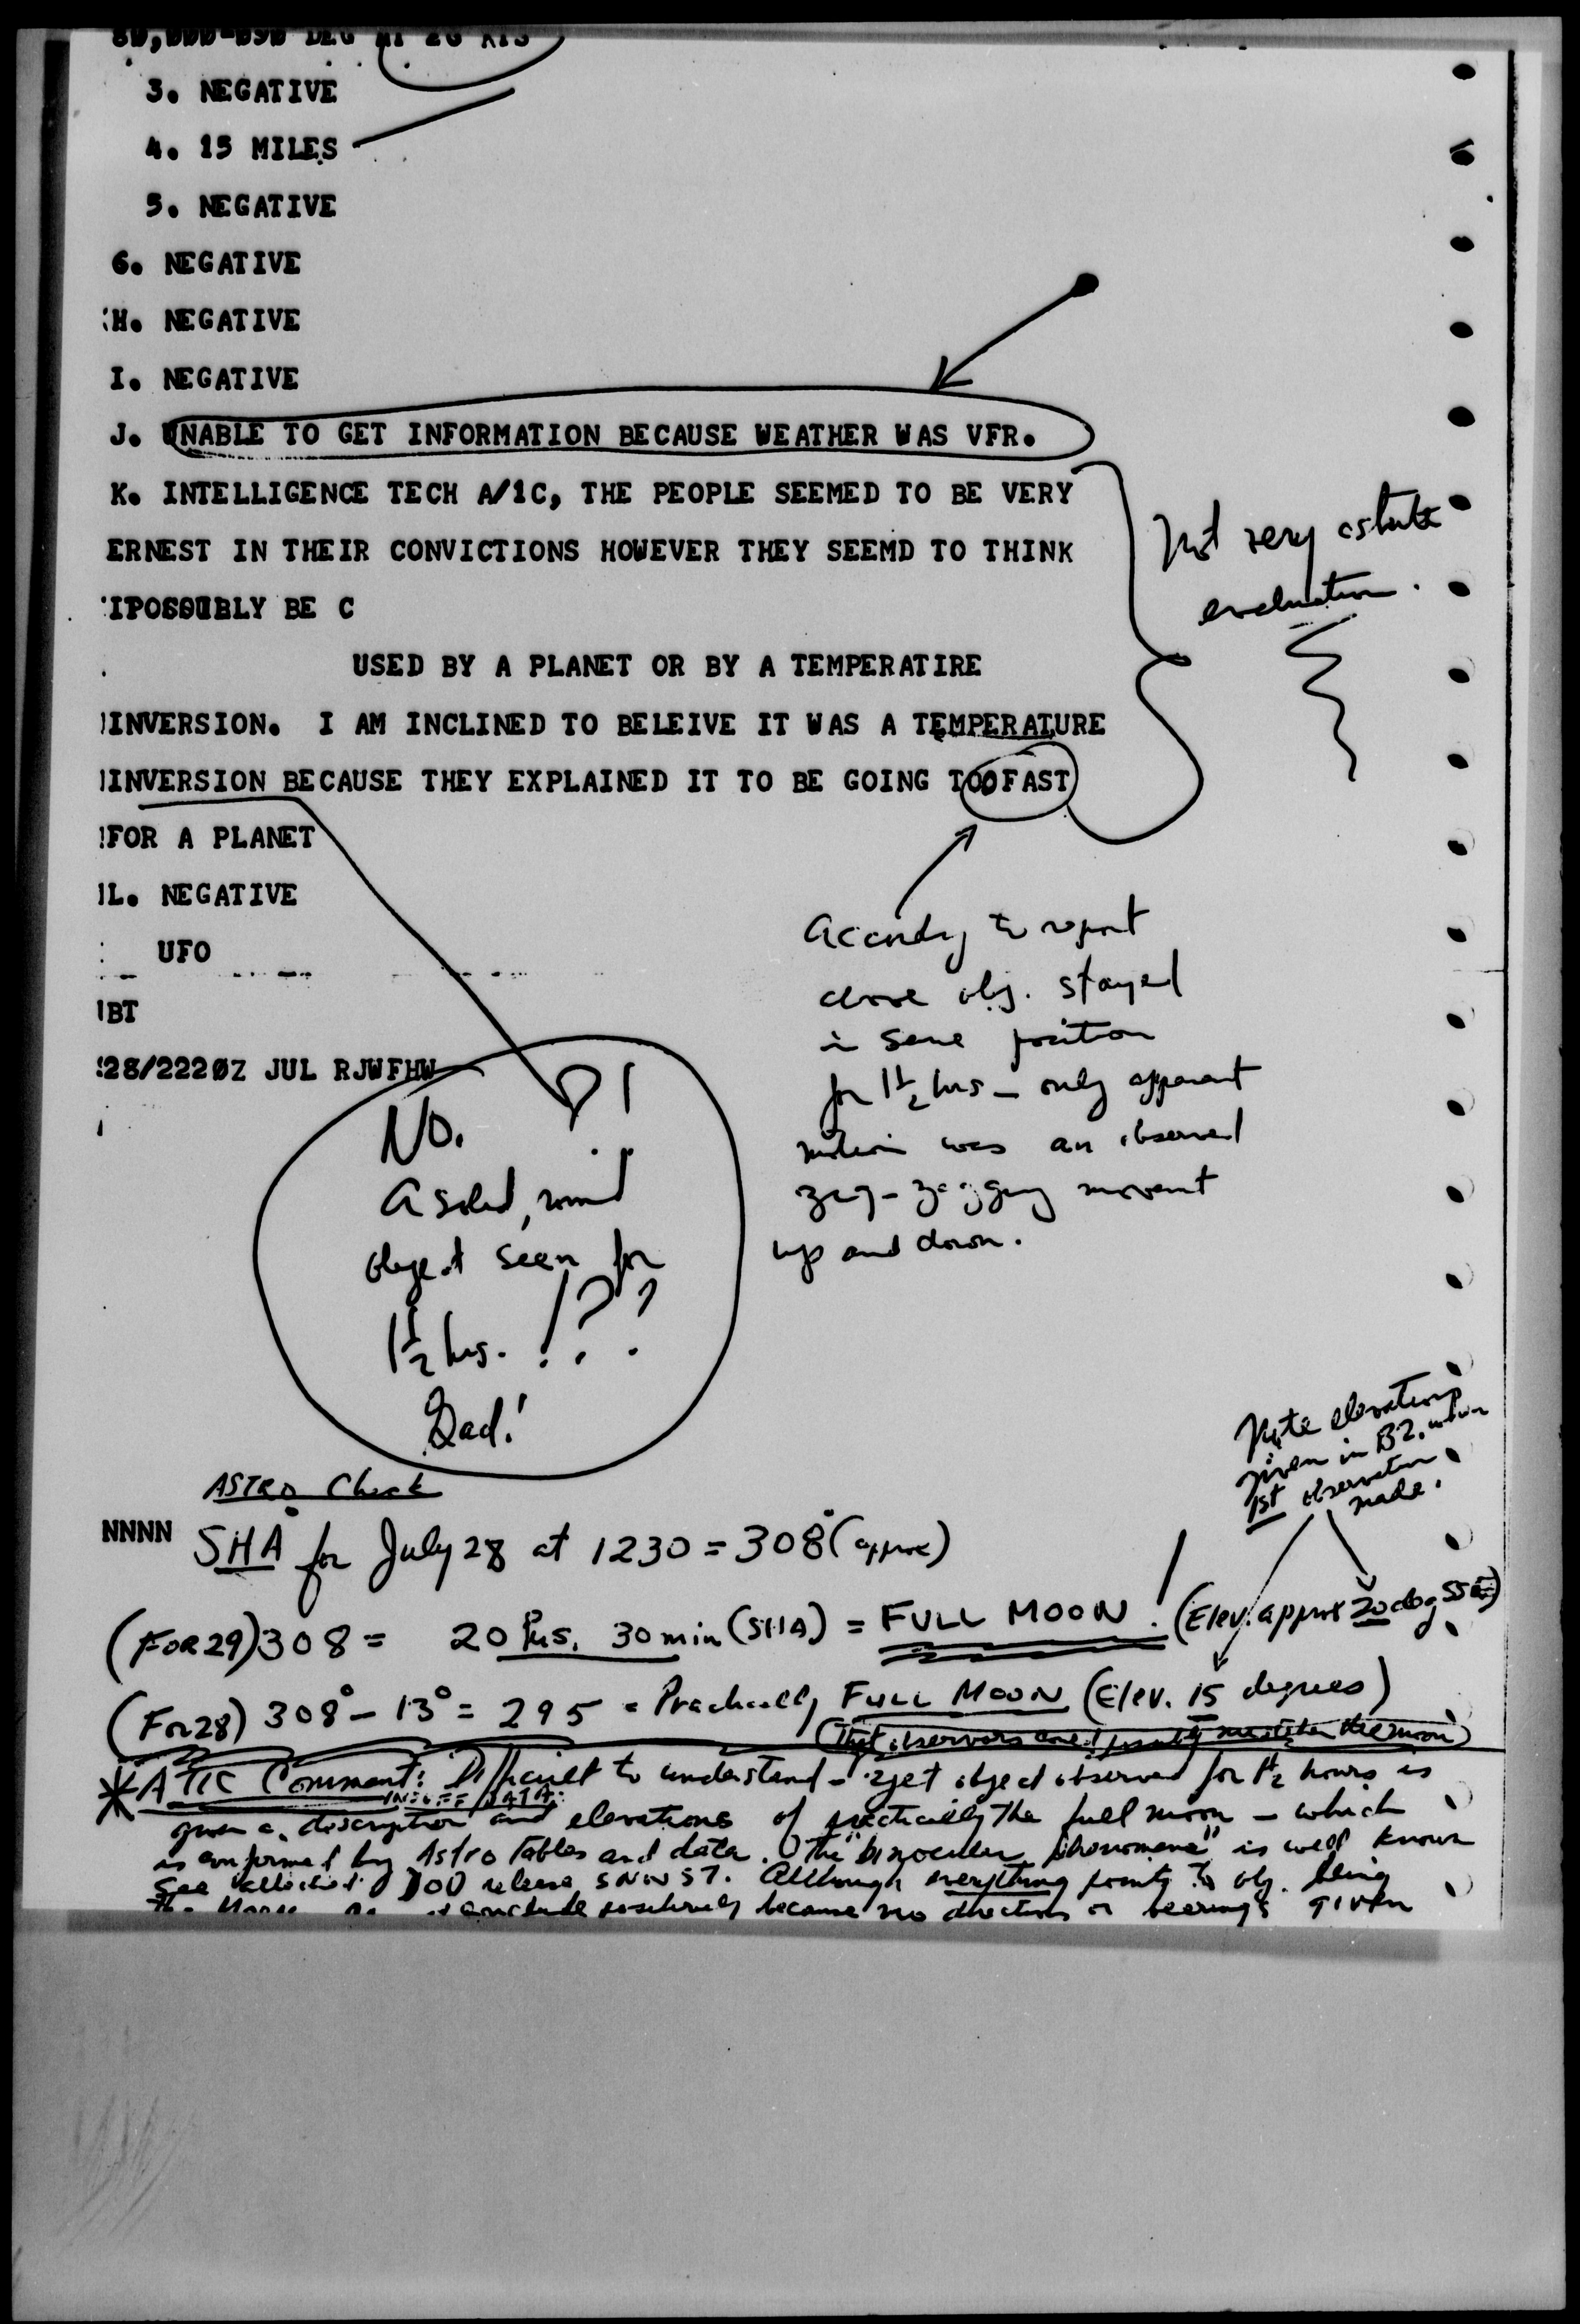 80,000-090 DEG AT 20 KTS
3. NEGATIVE
4. 15 MILES
5. NEGATIVE
G. NEGATIVE
H. NEGATIVE
I. NEGATIVE
J. UNABLE TO GET INFORMATION BECAUSE WEATHER WAS VFR.
K. INTELLIGENCE TECH A/1C, THE PEOPLE SEEMED TO BE VERY
ERNEST IN THEIR CONVICTIONS HOWEVER THEY SEEMD TO THINK
BE C
USED BY A PLANET OR BY A TEMPERATIRE
INVERSION. I AM INCLINED TO BELEIVE IT WAS A TEMPERATURE
INVERSION BECAUSE THEY EXPLAINED IT TO BE GOING TOOFAST
FOR A PLANET
L. NEGATIVE
UFO
BT
28/2220Z JUL RJWFHW
Not very astute
evaluation.
According to report
above obj. stayed
in same position
for 1 1/2 hrs - only apparent
motion was an observed
zig-zagging movement
up and down.
No. ?!
A solid, round
object seen for
1 1/2 hrs. !??
Gad!
Note elevations
given in B2, when
1st observation
made.
ASTRO Check
NNNN
SHA for July 28 at 1230 = 308° (approx)
(FOR 29) 308 = 20 hrs. 30 min (SHA) = FULL MOON! (Elev. approx 20 deg SSE)
(For 28) 308° - 13° = 295 = Practically FULL MOON (Elev. 15 degrees)
(That observers could possibly the moon)
* ATIC Comment: Difficult to understand - yet object observed for 1 1/2 hours is
INSUFF DATA:
given a description and elevations of practically the full moon - which
is confirmed by Astro tables and data. The "binocular phenomena" is well known
See attached DOD release 5 NOV 57. Although everything points to obj. being
the Moon conclude positively because no directions or bearings given